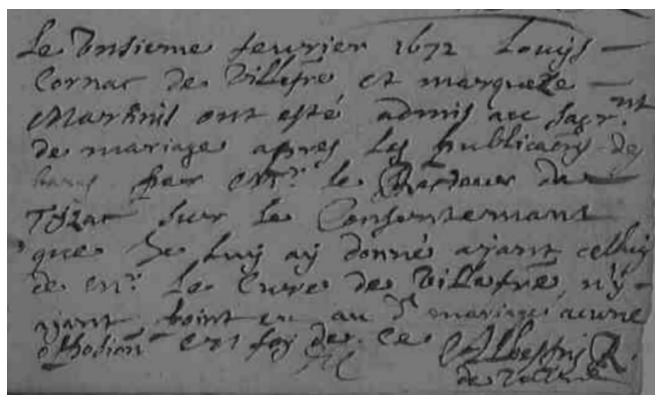 Le unsieme feuvrier 1672 Louÿs
Cornac de Villefre et marquese
Martinis ont esté admis au sagr.nt
de mariage apres les publicaõns des
bans par Mr. le
Tÿzac sur le Consentemant
que Je luy aÿ donné aÿant celluy
de mr. le Cure de Villefre n'ÿ
aÿant point eu au dt mariage aucune
en foÿ de ce